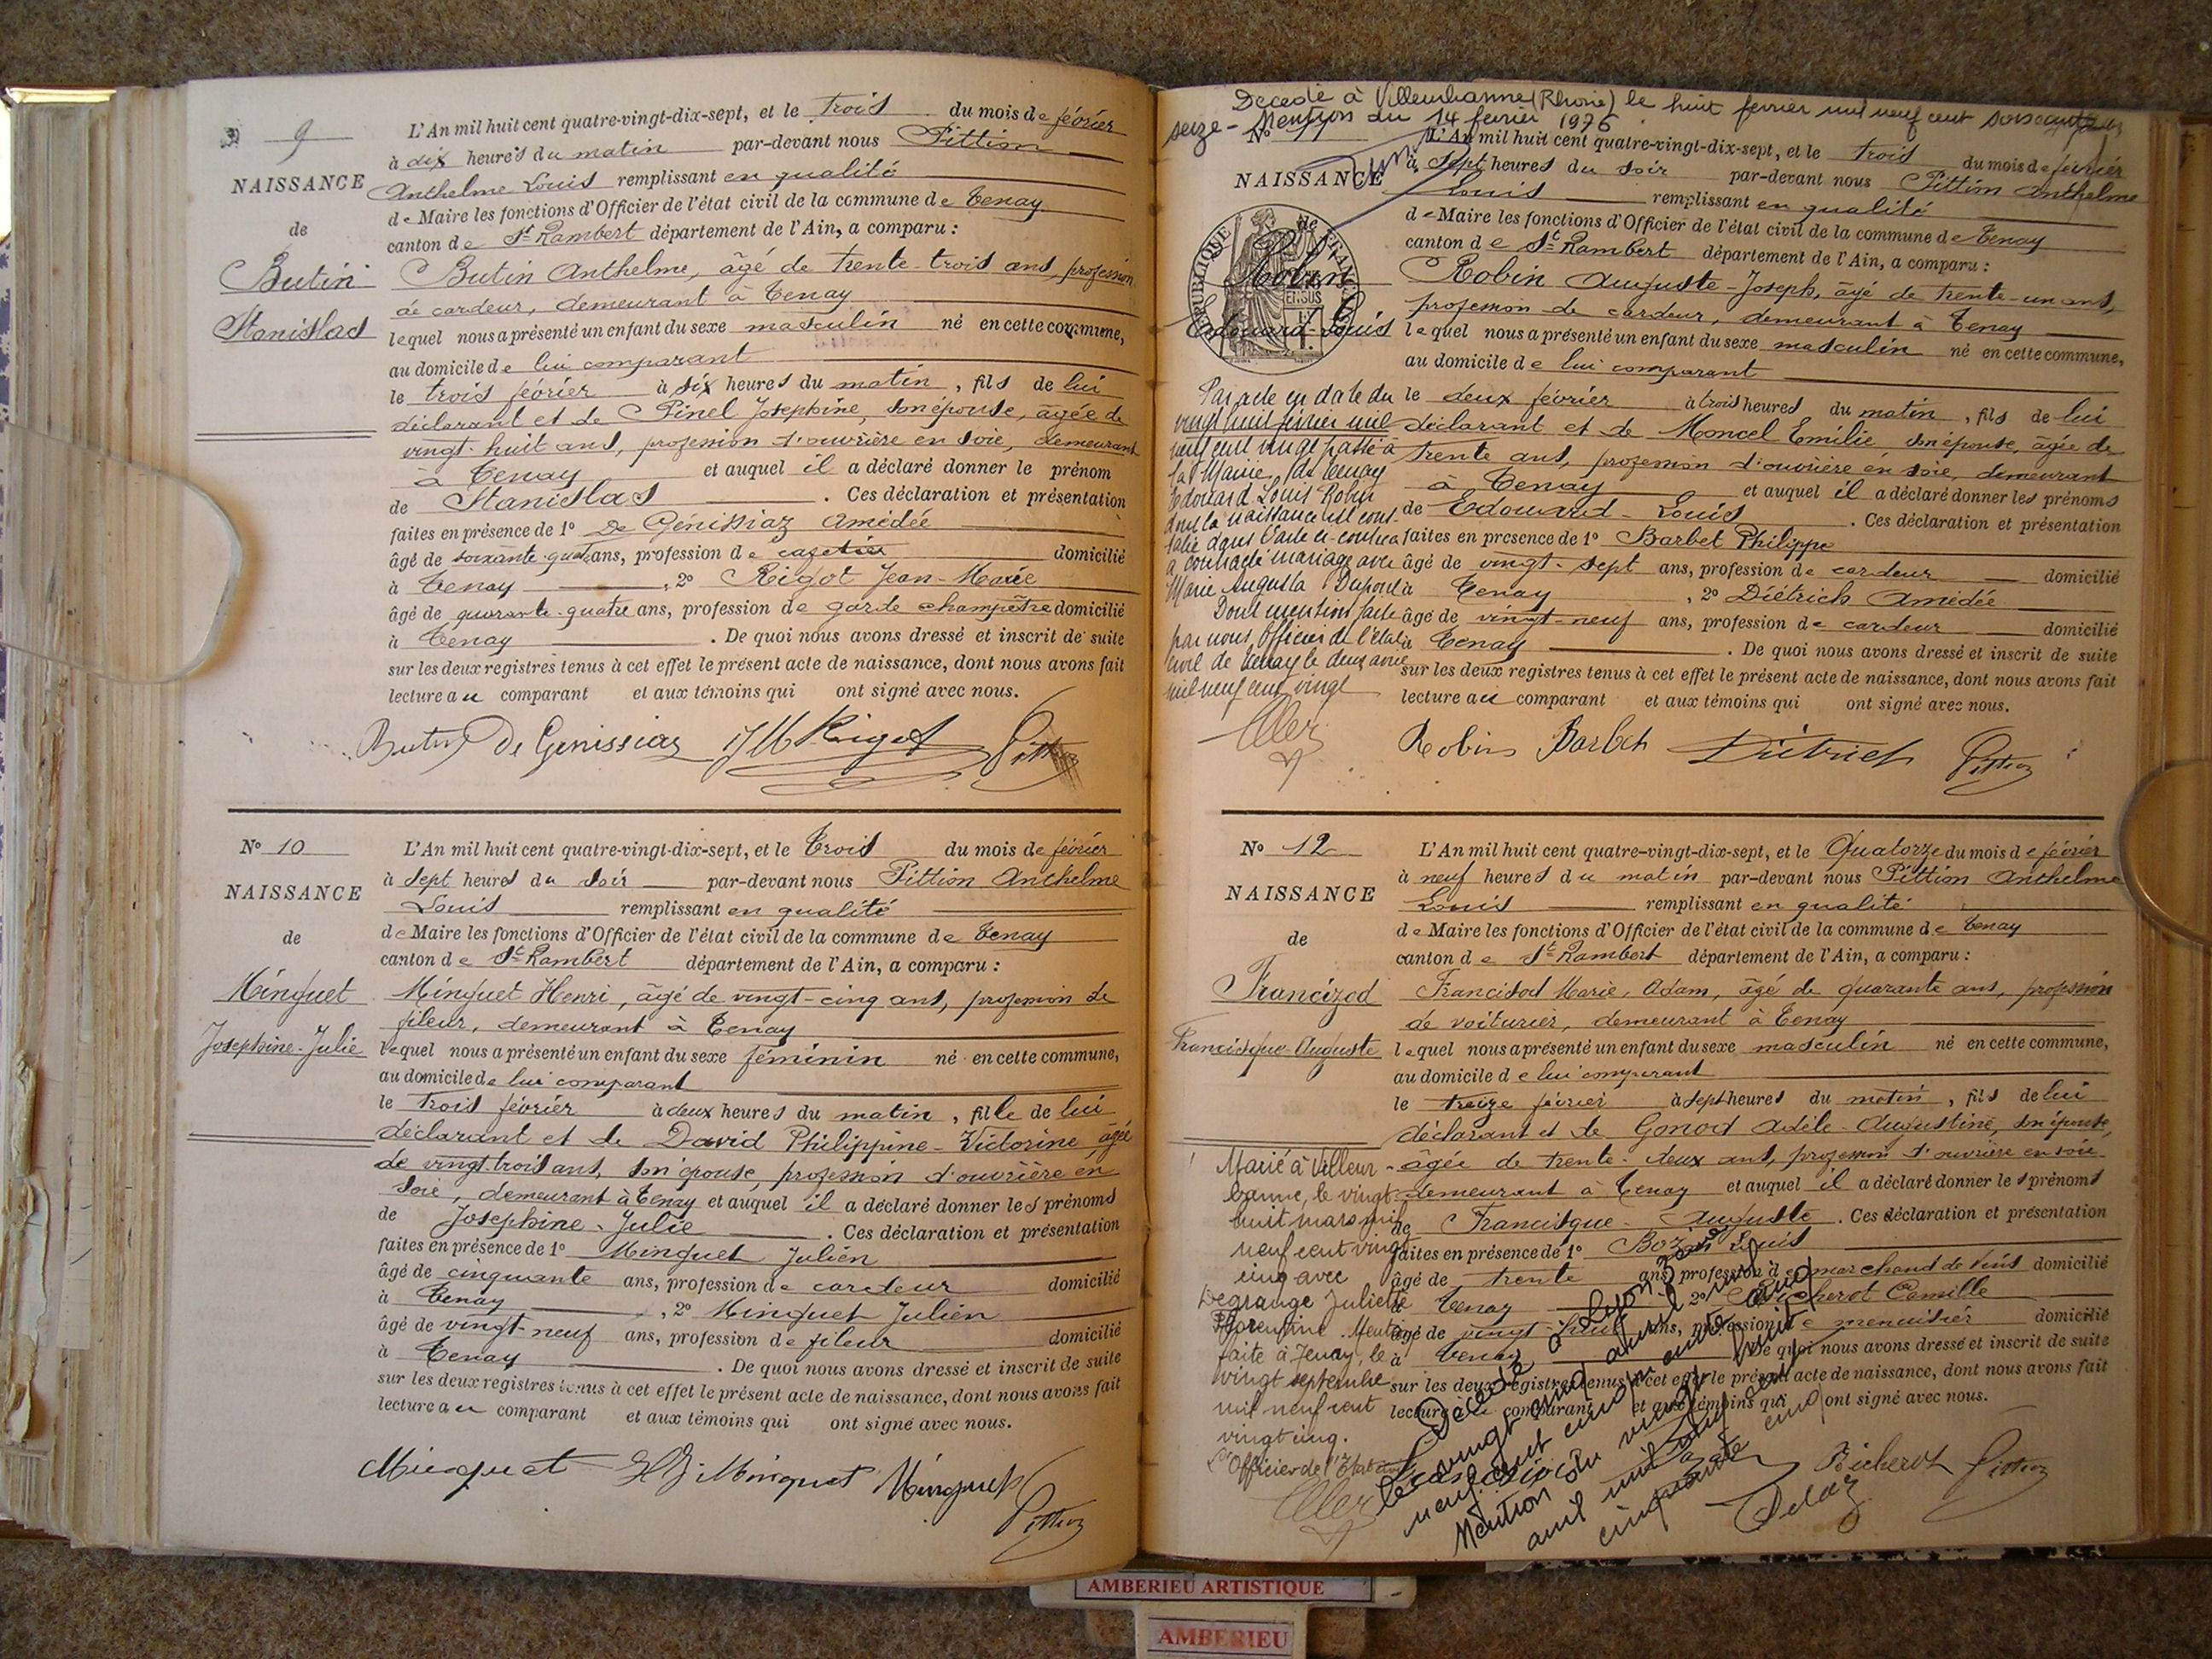 9
NAISSANCE
de
Butin
Stanislas
L'An mil huit cent quatre-vingt-dix-sept, et le trois du mois de février
à dix heures du matin par-devant nous Pittion
Anthelme Louis remplissant en qualité
de Maire les fonctions d'Officier de l'état civil de la commune de Tenay
canton de St Rambert département de l'Ain, a comparu :
Butin Anthelme, âgé de trente-trois ans, profession
de cardeur, demeurant à Tenay
lequel nous a présenté un enfant du sexe masculin né en cette commune,
au domicile de lui comparant
le trois février à six heures du matin, fils de lui
déclarant et de Pinel Josephine, son épouse, âgée de
vingt-huit ans, profession d'ouvrière en soie, demeurant
à Tenay et auquel il a déclaré donner le prénom
de Stanislas. Ces déclaration et présentation
faites en présence de 1° De Génissiaz Amédée
âgé de soixante-quatre ans, profession de cafetier domicilié
à Tenay, 2° Rigot Jean-Marie
âgé de quarante-quatre ans, profession de garde champêtre domicilié
à Tenay. De quoi nous avons dressé et inscrit de suite
sur les deux registres tenus à cet effet le présent acte de naissance, dont nous avons fait
lecture au comparant et aux témoins qui ont signé avec nous.
Butin De Genissiaz JM Rigot Pittion
N° 10
NAISSANCE
de
Minguet
Josephine-Julie
L'An mil huit cent quatre-vingt-dix-sept, et le Trois du mois de février
à sept heures du soir par-devant nous Pittion Anthelme
Louis remplissant en qualité
de Maire les fonctions d'Officier de l'état civil de la commune de Tenay
canton de St Rambert département de l'Ain, a comparu :
Minguet Henri, âgé de vingt-cinq ans, profession de
fileur, demeurant à Tenay
lequel nous a présenté un enfant du sexe féminin né en cette commune,
au domicile de lui comparant
le trois février à deux heures du matin, fille de lui
déclarant et de David Philippine-Victorine, âgée
de vingt-trois ans, son épouse, profession d'ouvrière en
soie, demeurant à Tenay et auquel il a déclaré donner les prénoms
de Josephine-Julie. Ces déclaration et présentation
faites en présence de 1° Minguet Julien
âgé de cinquante ans, profession de cardeur domicilié
à Tenay, 2° Minguet Julien
âgé de vingt-neuf ans, profession de fileur domicilié
à Tenay. De quoi nous avons dressé et inscrit de suite
sur les deux registres tenus à cet effet le présent acte de naissance, dont nous avons fait
lecture au comparant et aux témoins qui ont signé avec nous.
Minguet Minguet Minguet
Pittion
Decedé à Villeurbanne (Rhône) le huit février mil neuf cent soixante
seize - Mention du 14 février 1976
N° 11
NAISSANCE
de
Robin
Edouard-Louis
RÉPUBLIQUE FRANÇAISE
EN SUS
L'An mil huit cent quatre-vingt-dix-sept, et le trois du mois de février
à sept heures du soir par-devant nous Pittion Anthelme
Louis remplissant en qualité
de Maire les fonctions d'Officier de l'état civil de la commune de Tenay
canton de St Rambert département de l'Ain, a comparu :
Robin Auguste-Joseph, âgé de trente-un ans,
profession de cardeur, demeurant à Tenay
lequel nous a présenté un enfant du sexe masculin né en cette commune,
au domicile de lui comparant
le deux février à trois heures du matin, fils de lui
déclarant et de Moncel Emilie son épouse, âgée de
trente ans, profession d'ouvrière en soie, demeurant
à Tenay et auquel il a déclaré donner les prénoms
de Edouard-Louis. Ces déclaration et présentation
faites en presence de 1° Barbet Philippe
âgé de vingt-sept ans, profession de cardeur domicilié
à Tenay, 2° Diétrich Amédée
âgé de vingt-neuf ans, profession de cardeur domicilié
à Tenay. De quoi nous avons dressé et inscrit de suite
sur les deux registres tenus à cet effet le présent acte de naissance, dont nous avons fait
lecture au comparant et aux témoins qui ont signé avec nous.
Par acte en date du
vingt huit février mil
neuf cent vingt passé à
la Mairie de Tenay
Edouard Louis Robin
dont la naissance est cons-
tatée dans l'acte ci-contre
a contracté mariage avec
Marie Augusta Dupont
Dont mention faite
par nous, officier de l'état
civil de Tenay le deux
mil neuf cent vingt
Robin Barbet Diétrich Pittion
N° 12
NAISSANCE
de
Francizod
Francisque-Auguste
L'An mil huit cent quatre-vingt-dix-sept, et le Quatorze du mois de février
à neuf heures du matin par-devant nous Pittion Anthelme
Louis remplissant en qualité
de Maire les fonctions d'Officier de l'état civil de la commune de Tenay
canton de St Rambert département de l'Ain, a comparu :
Francisod Marie, Adam, âgé de quarante ans, profession
de voiturier, demeurant à Tenay
lequel nous a présenté un enfant du sexe masculin né en cette commune,
au domicile de lui comparant
le treize février à sept heures du matin, fils de lui
déclarant et de Gonod Adèle-Augustine, son épouse,
âgée de trente-deux ans, profession d'ouvrière en soie
demeurant à Tenay et auquel il a déclaré donner les prénoms
de Francisque-Auguste. Ces déclaration et présentation
faites en présence de 1° Louis
âgé de trente ans, profession de marchand de vins domicilié
à Tenay 2° Richerot Camille
âgé de vingt-huit ans, profession de menuisier domicilié
à Tenay De quoi nous avons dressé et inscrit de suite
sur les deux registres tenus à cet effet le présent acte de naissance, dont nous avons fait
lecture au comparant et aux témoins qui ont signé avec nous.
Marié à Villeur-
banne, le vingt-
huit mars mil
neuf cent vingt
cinq avec
Degrange Juliette
Florentine. Mention
faite à Tenay, le
vingt septembre
mil neuf cent
vingt cinq.
L'Officier de l'Etat civil
Décédé à Lyon 3e
le vingt cinq avril mil
neuf cent cinquante cinq
Mention du vingt huit
avril mil neuf cent
cinquante cinq
Richerot Pittion
AMBERIEU ARTISTIQUE
AMBERIEU